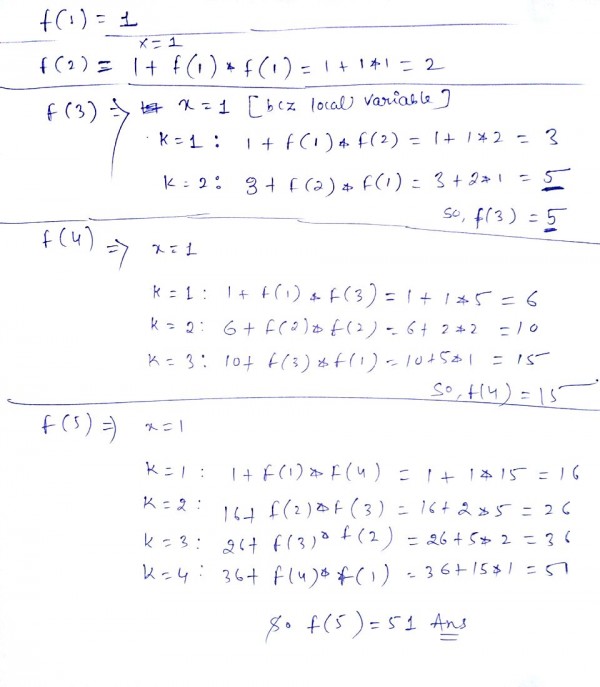 f(1) = 1
x=1
f(2) = 1 + f(1) * f(1) = 1 + 1*1 = 2
f(3) => x = 1 [bcz local variable]
k=1 : 1 + f(1) * f(2) = 1 + 1*2 = 3
k = 2 : 3 + f(2) * f(1) = 3 + 2*1 = 5
so, f(3) = 5
f(4) => x = 1
k = 1 : 1 + f(1) * f(3) = 1 + 1*5 = 6
k = 2 : 6 + f(2) * f(2) = 6 + 2*2 = 10
k = 3 : 10 + f(3) * f(1) = 10+5*1 = 15
So, f(4) = 15
f(5) => x=1
k=1 : 1 + f(1) * f(4) = 1 + 1*15 = 16
k=2 : 16+ f(2) * f(3) = 16 + 2*5 = 26
k = 3 : 26+ f(3) * f(2) = 26+5*2 = 36
k=4 : 36+ f(4) * f(1) = 36+15*1 = 51
So f(5) = 51 Ans